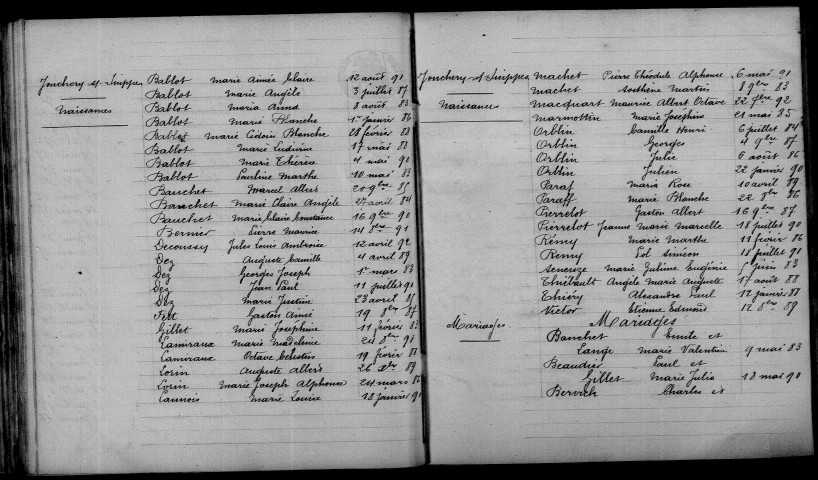 Jonchery s/ Suippes Bablot Marie Aimée Claire 12 août 91
Bablot Marie Angèle 3 juillet 87
Naissances Bablot Maria Anna 8 août 83
Bablot Marie Blanche 1er janvier 86
Bablot Marie Blanche 28 février 88
Bablot Marie Ludivine 17 mai 88
Bablot Marie Thérèse 4 mai 90
Bablot Pauline Marthe 10 mai 83
Bauchet Marcel Albert 20 9bre 85
Bauchet Marie Claire Angèle 27 avril 84
Bauchet Marie Claire Constance 16 9bre 90
Bernier Pierre Maurice 14 8bre 91
Decoussy Jules Louis Ambroise 12 avril 92
Dez Auguste Camille 4 avril 89
Dez Georges Joseph 1er mars 83
Dez Jean Paul 11 juillet 91
Dez Marie Justine 23 avril 85
Gaston Aimé 19 8bre 87
Gillet Marie Joséphine 11 février 83
Lamiraux Marie Madeleine 24 8bre 91
Lamiraux Octave Célestin 19 février 87
Lorin Auguste Albert 26 Xbre 89
Lorin Marie Joseph Alphonse 24 mars
Launois Marie Louise 18 janvier 91
Jonchery s/ Suippes Machet Pierre Théodule Alphonse 6 mai 91
Machet Sosthène Martin 8 9bre 83
Naissances Macquart Maurice Albert Octave 22 92
Marmottin Marie Joséphine 21 mai 85
Orblin Camille Henri 6 juillet 84
Orblin Georges 4 9bre 87
Orblin Julie 6 août 86
Orblin Julien 22 janvier 90
Paraf Maria Rose 10 avril 89
Paraff Marie Blanche 22 9bre 86
Pierrelot Gaston Albert 16 9bre 87
Pierrelot Jeanne Marie Marcelle 18 juillet 90
Rémy Marie Marthe 11 février 86
Remy Siméon 15 juillet 91
Marie Zulime Eugénie 83
Thiébault Angèle Marie Auguste 17 août 88
Thiéry Alexandre Paul 12 janvier 88
Victor Etienne Edmond 12 8bre 89
Mariages Mariages
Bauchet Emile et
Lange Marie Valentine 9 mai 83
Beaudier Paul et
Gillet Marie Julia 18 mai 90
Charles et